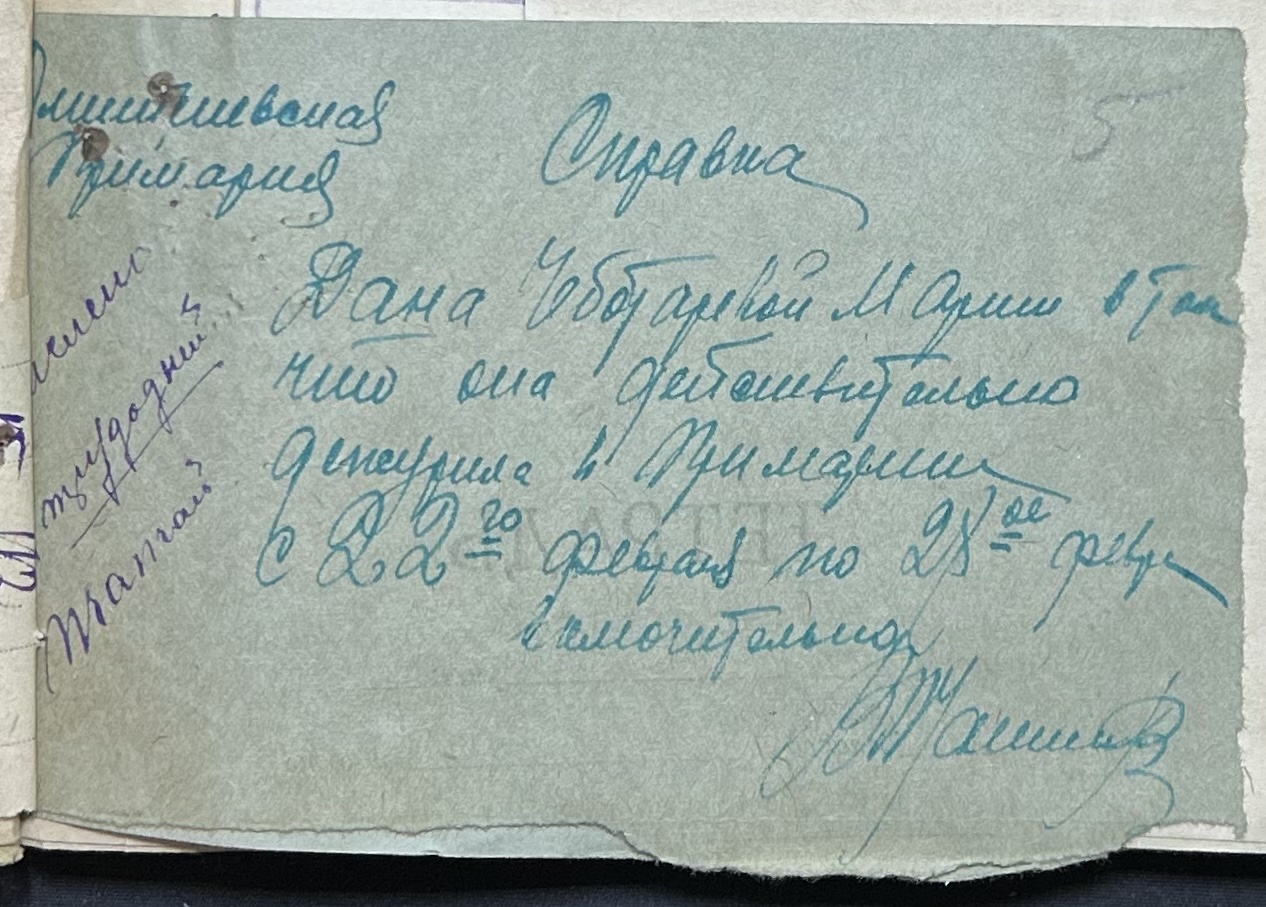 Примария
5
Справка
Дана Чеботаревой Марии в том
что она действительно
дежурила в Примарии
с 22го февраля по 28ое февр
включительно
трудодней